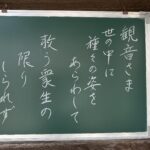 観音さま
世の中に
種々の姿を
あらわして
救う衆生の
限り
しられず